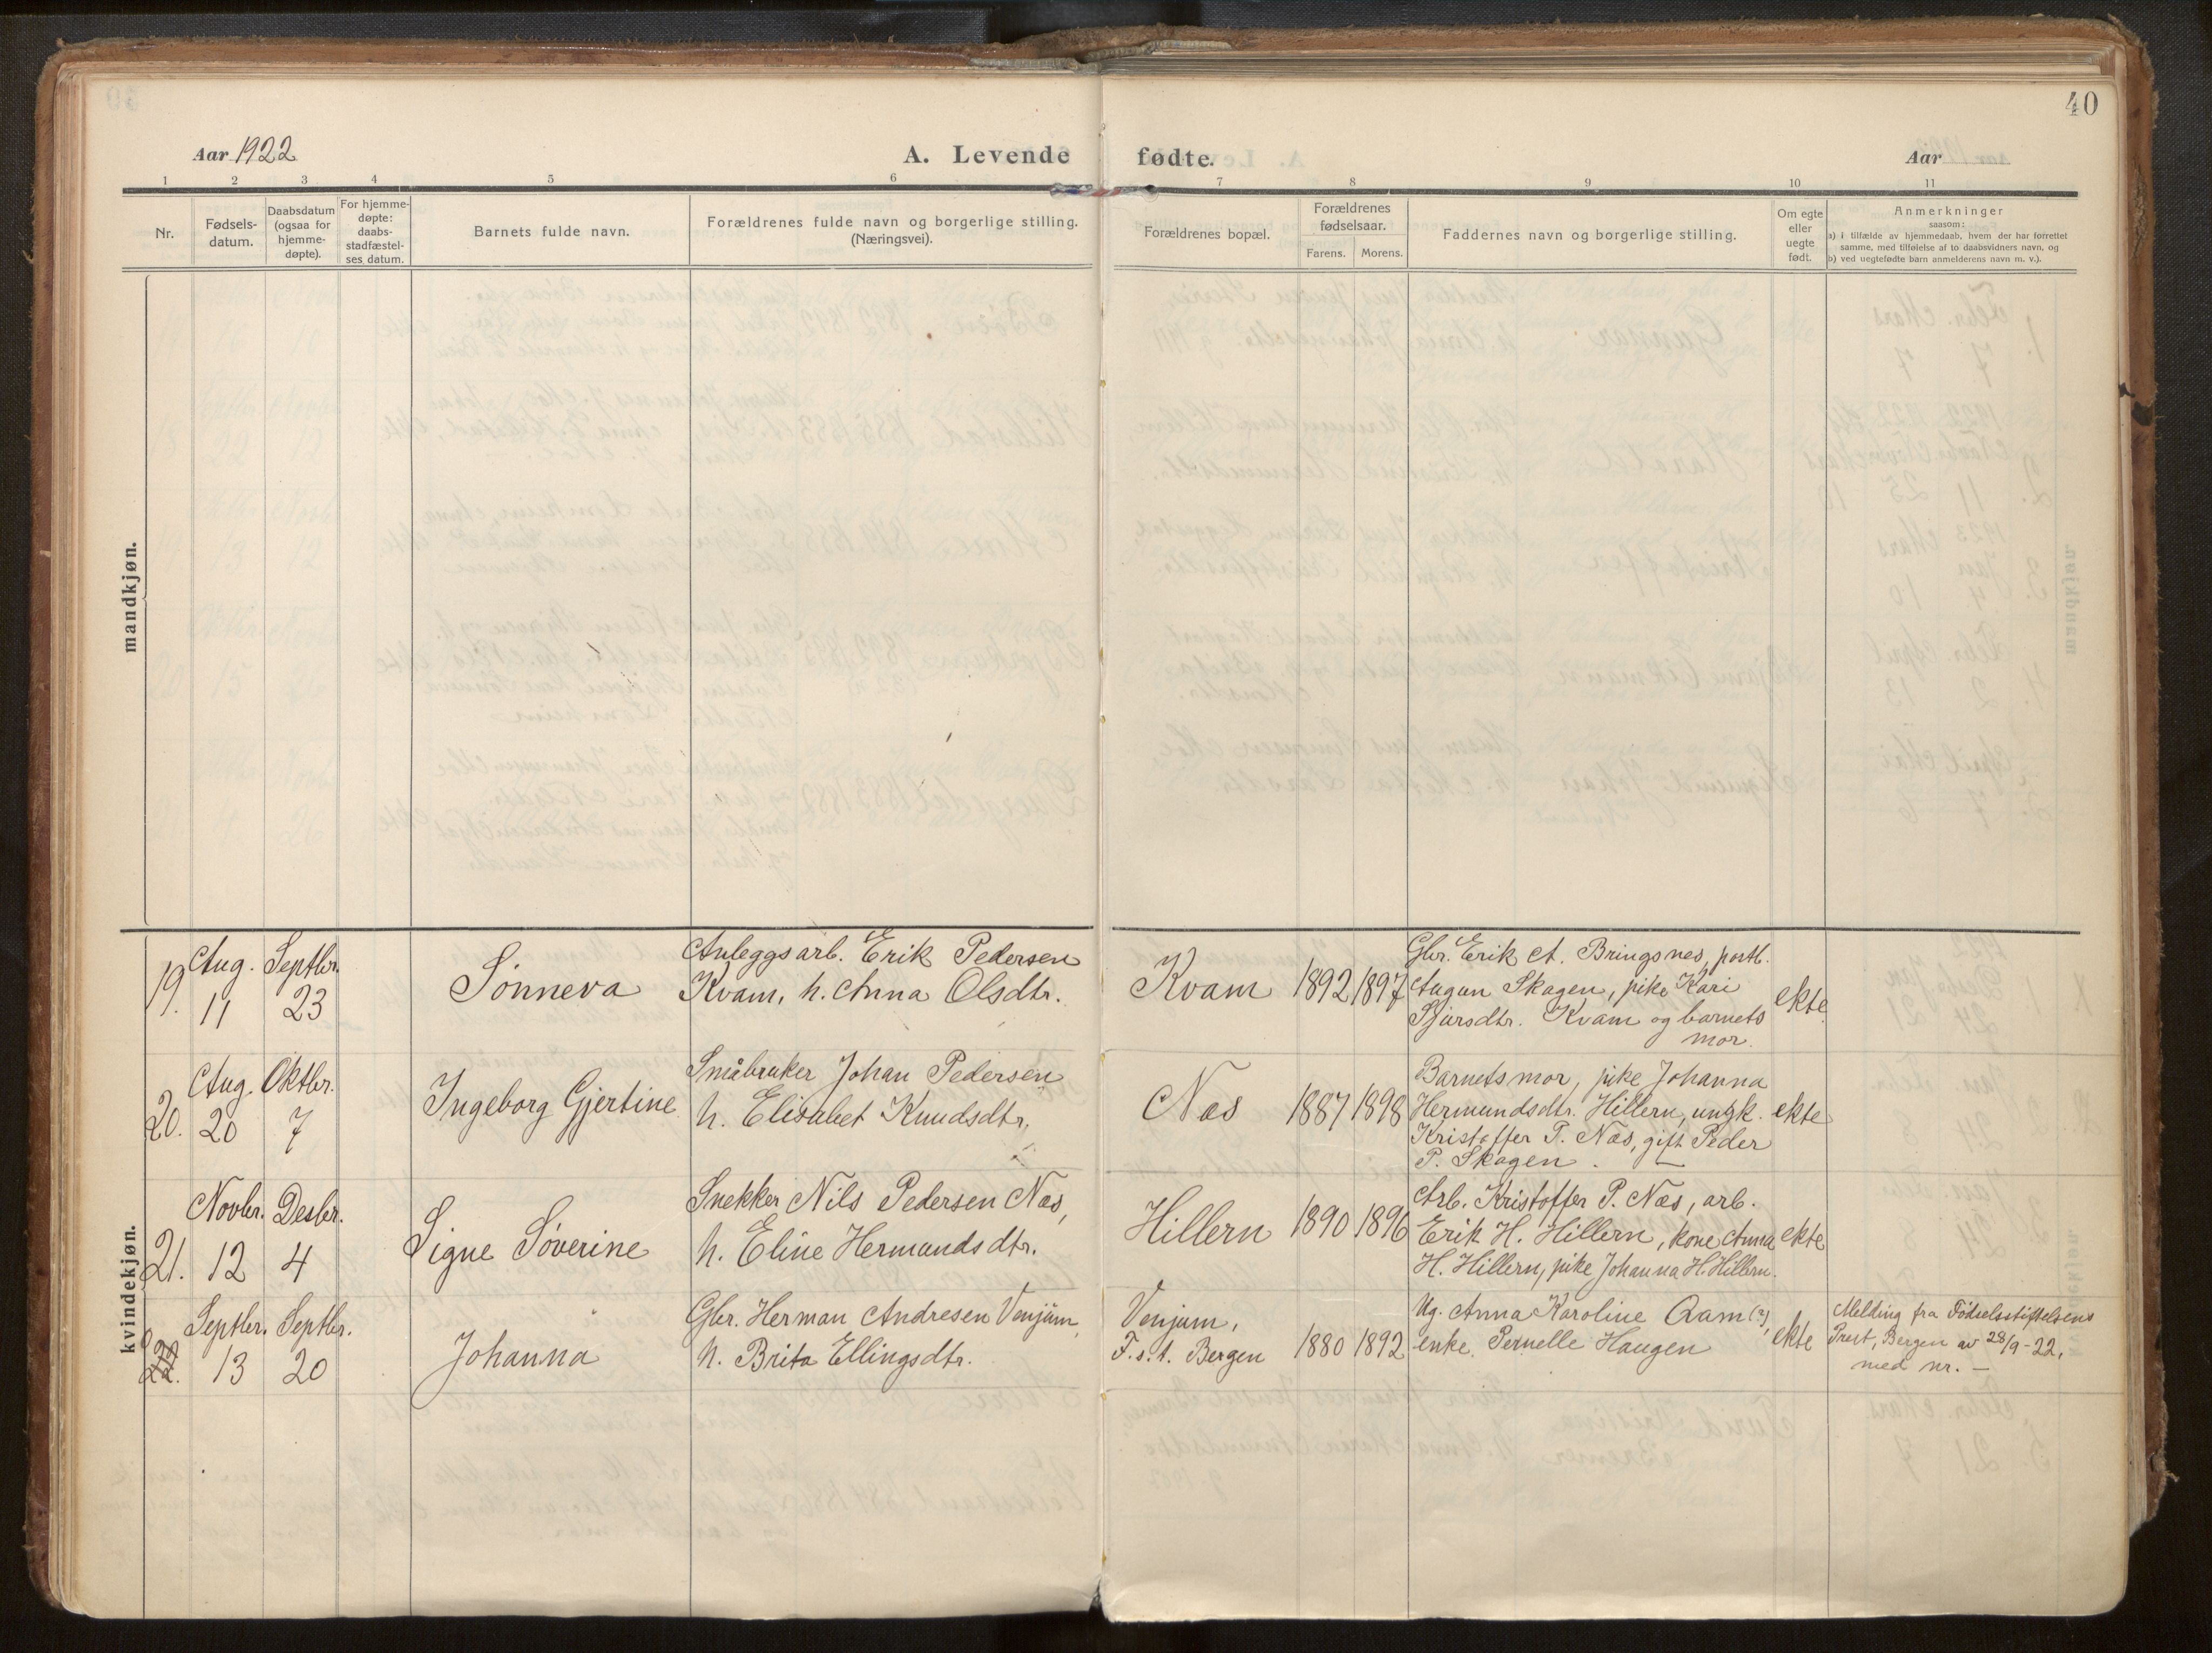 40
Aar 1922
A. Levende fødte.
Aar
1 2 3 4 5 6 7 8 9 10 11
Nr.
Fødsels-
datum.
Daabsdatum
(ogsaa for
hjemme-
døpte).
For hjemme-
døpte:
daabs-
stadfæstel-
ses datum.
Barnets fulde navn.
Forældrenes fulde navn og borgerlige stilling.
(Næringsvei).
Forældrenes bopæl.
Forældrenes
fødselsaar.
Farens. Morens.
Faddernes navn og borgerlige stilling.
Om egte
eller
uegte
født.
Anmerkninger
saasom:
a) i tilfælde av hjemmedaab, hvem der har forrettet
samme, med tilføielse af to daabsvidners navn, og
b) ved uegtefødte barn anmelderens navn m. v.).
mandkjøn.
kvindekjøn.
19.
Aug.
11
Septbr.
23
Sønneva
Anleggsarb. Erik Pedersen
Kvam, h. Anna Olsdtr.
Kvam
1892 1897
Gbr. Erik A. Bringsnes, postb.
Augun Skagen, pike Kari
Sjursdtr. Kvam og barnets
mor.
ekte
20.
Aug.
20
Oktbr.
7
Ingeborg Gjertine
Småbruker Johan Pedersen
h. Elisabet Knudsdtr.
Næs
1887 1898
Barnets mor, pike Johanna
Hermundsdtr. Hillern, ungk.
Kristoffer P. Næs, gift Peder
P. Skagen.
ekte
21.
Novbr.
12
Desbr.
4
Signe Søverine
Snekker Nils Pedersen Næs,
h. Eline Hermundsdtr.
Hillern
1890 1896
Arb. Kristoffer P. Næs, arb.
Erik H. Hillern, kone Anna
H. Hillern, pike Johanna H. Hillern.
ekte
22.
Septbr.
13
Septbr.
20
Johanna
Gbr. Herman Andresen Venjum,
h. Brita Ellingsdtr.
Venjum,
F.s.t. Bergen
1880 1892
Ug. Anna Karoline Aam (?),
enke Pernelle Haugen
ekte
Melding fra Fødselsstiftelsens
Prest, Bergen av 28/9-22,
med nr. —